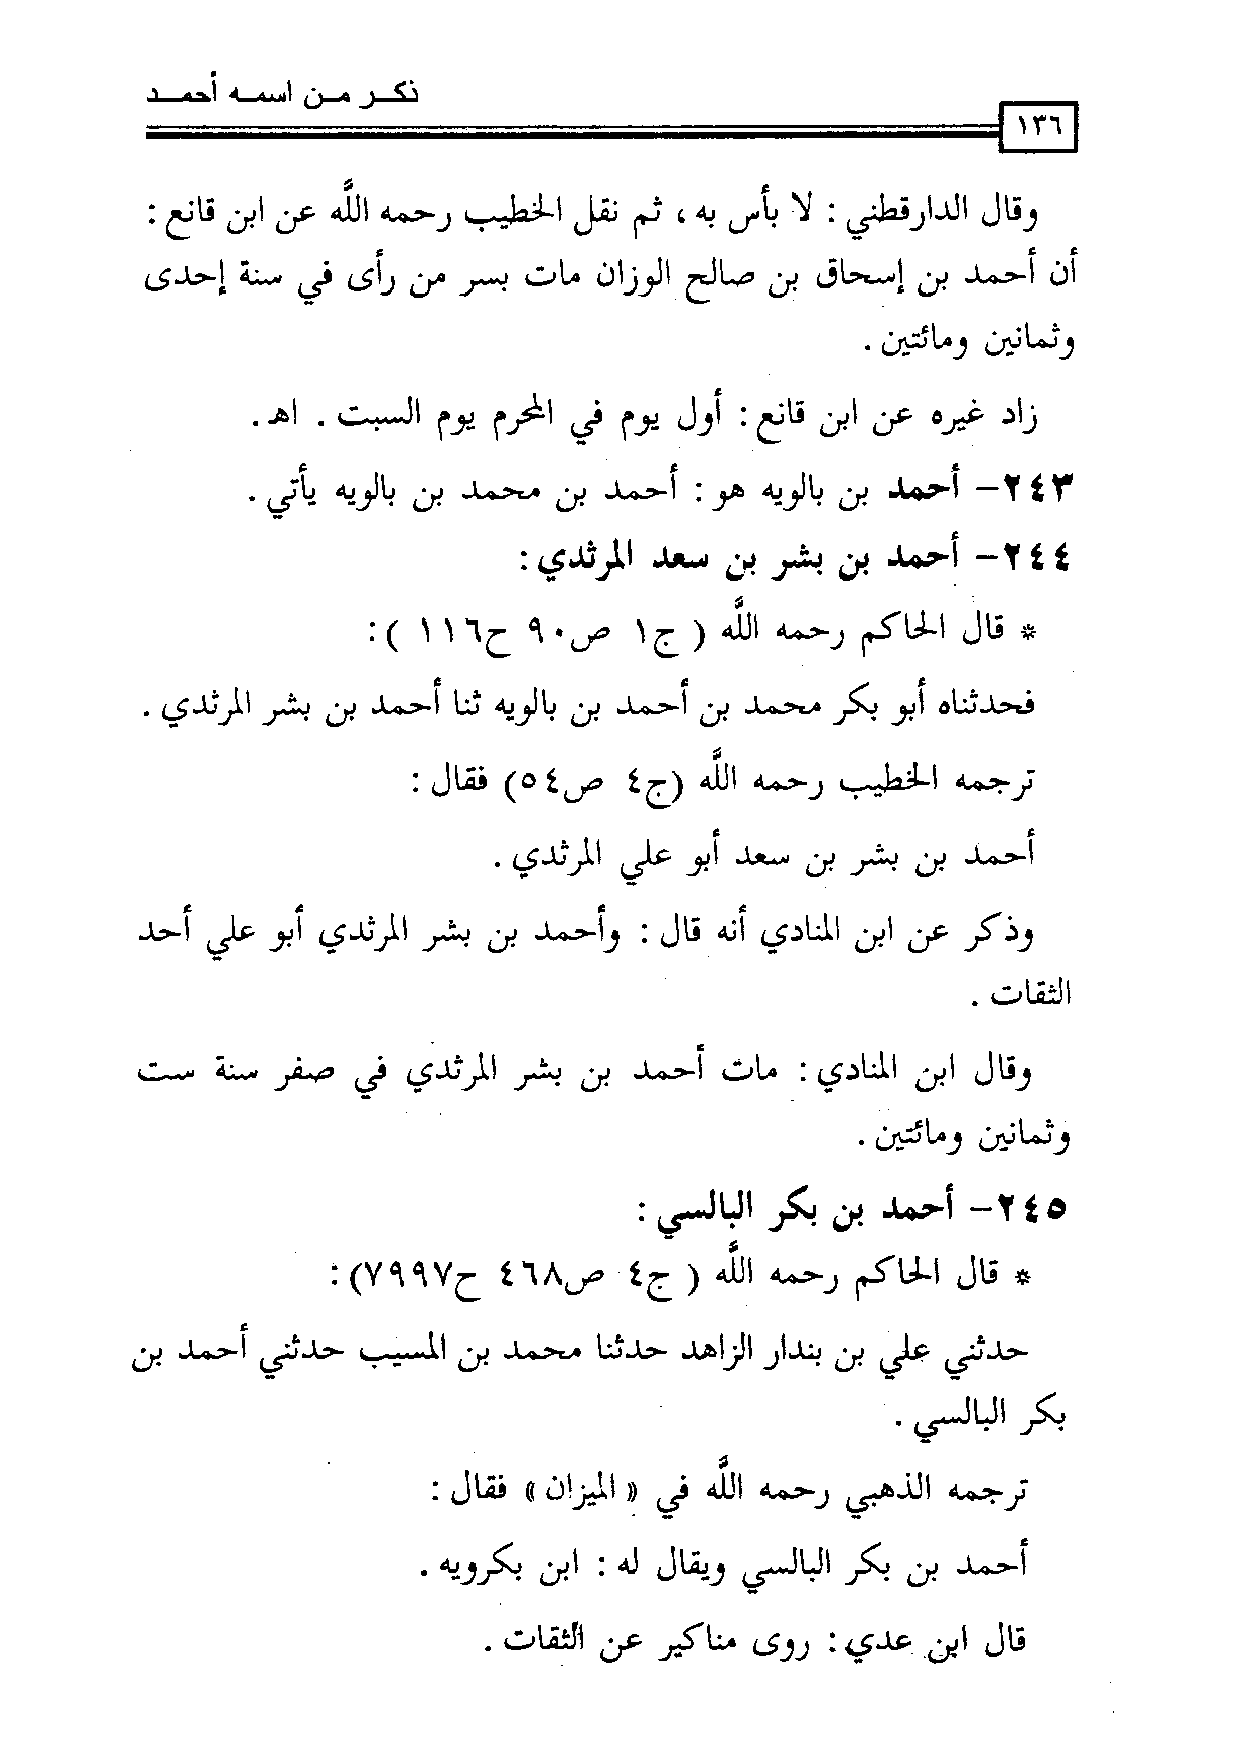 ذكر من اسمه أحمد
١٣٦
وقال الدارقطني : لا بأس به ، ثم نقل الخطيب رحمه اللَّه عن ابن قانع :
أن أحمد بن إسحاق بن صالح الوزان مات بسر من رأى في سنة إحدى
وثمانين ومائتين .
زاد غيره عن ابن قانع : أول يوم في المحرم يوم السبت . اهـ .
٢٤٣- أحمد بن بالويه هو : أحمد بن محمد بن بالويه يأتي .
٢٤٤- أحمد بن بشر بن سعد المرثدي :
* قال الحاكم رحمه اللَّه ( ج١ ص٩٠ ح١١٦ ) :
فحدثناه أبو بكر محمد بن أحمد بن بالويه ثنا أحمد بن بشر المرثدي .
ترجمه الخطيب رحمه اللَّه (ج٤ ص٥٤) فقال :
أحمد بن بشر بن سعد أبو علي المرثدي .
وذكر عن ابن المنادي أنه قال : وأحمد بن بشر المرثدي أبو علي أحد
الثقات .
وقال ابن المنادي : مات أحمد بن بشر المرثدي في صفر سنة ست
وثمانين ومائتين .
٢٤٥- أحمد بن بكر البالسي :
* قال الحاكم رحمه اللَّه ( ج٤ ص٤٦٨ ح٧٩٩٧) :
حدثني علي بن بندار الزاهد حدثنا محمد بن المسيب حدثني أحمد بن
بكر البالسي .
ترجمه الذهبي رحمه اللَّه في « الميزان » فقال :
أحمد بن بكر البالسي ويقال له : ابن بكرويه .
قال ابن عدي : روى مناكير عن الثقات .